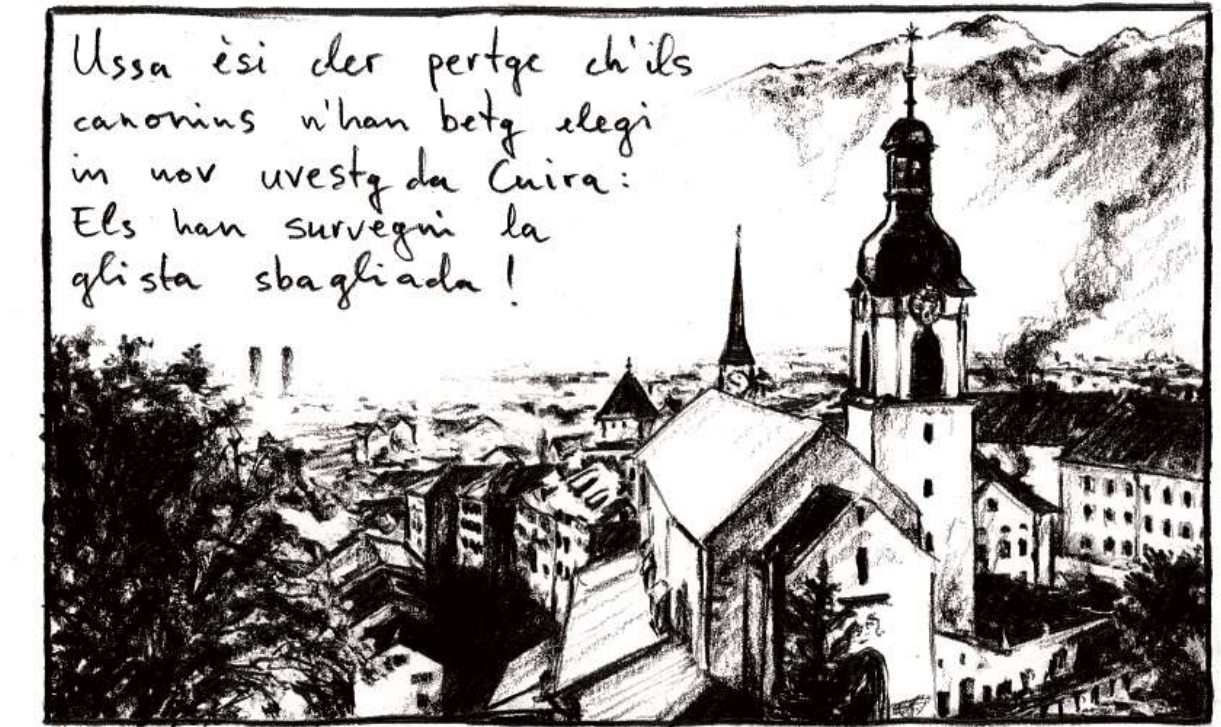 Ussa èsi cler pertge ch'ils
canonins n'han betg elegi
in nov uvestg da Cuira:
Els han survegni la
glista sbagliada!